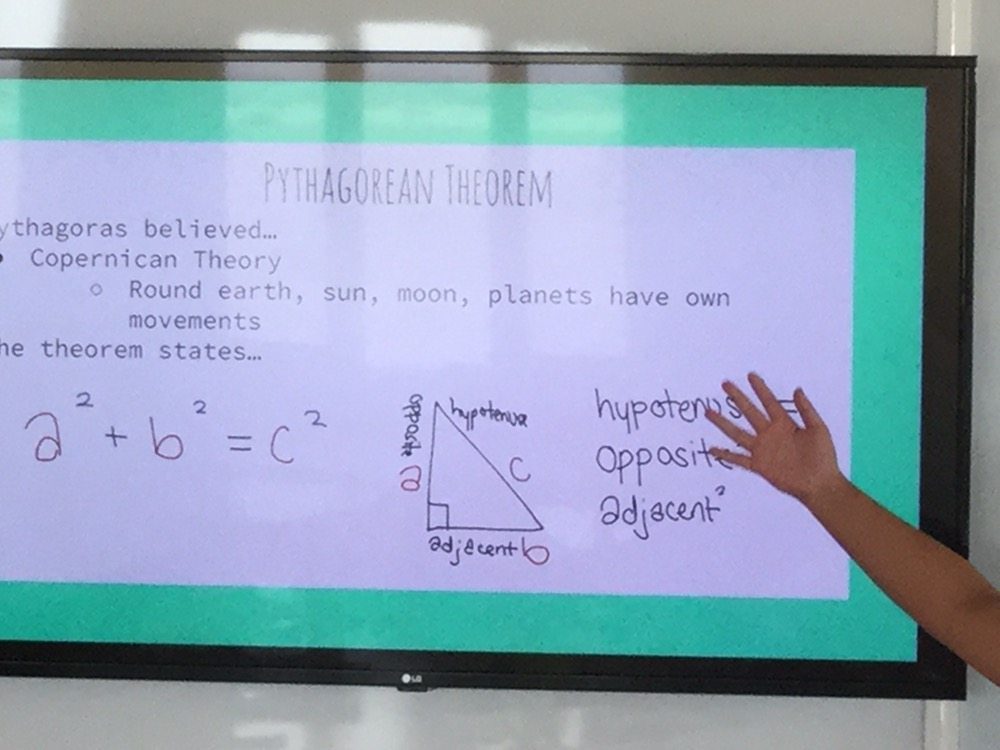 PYTHAGOREAN THEOREM
ythagoras believed…
• Copernican Theory
○ Round earth, sun, moon, planets have own
movements
he theorem states…
a² + b² = c²
opposite a
hypotenuse
c
adjacent b
hypotenus =
opposit
adjacent²
LG